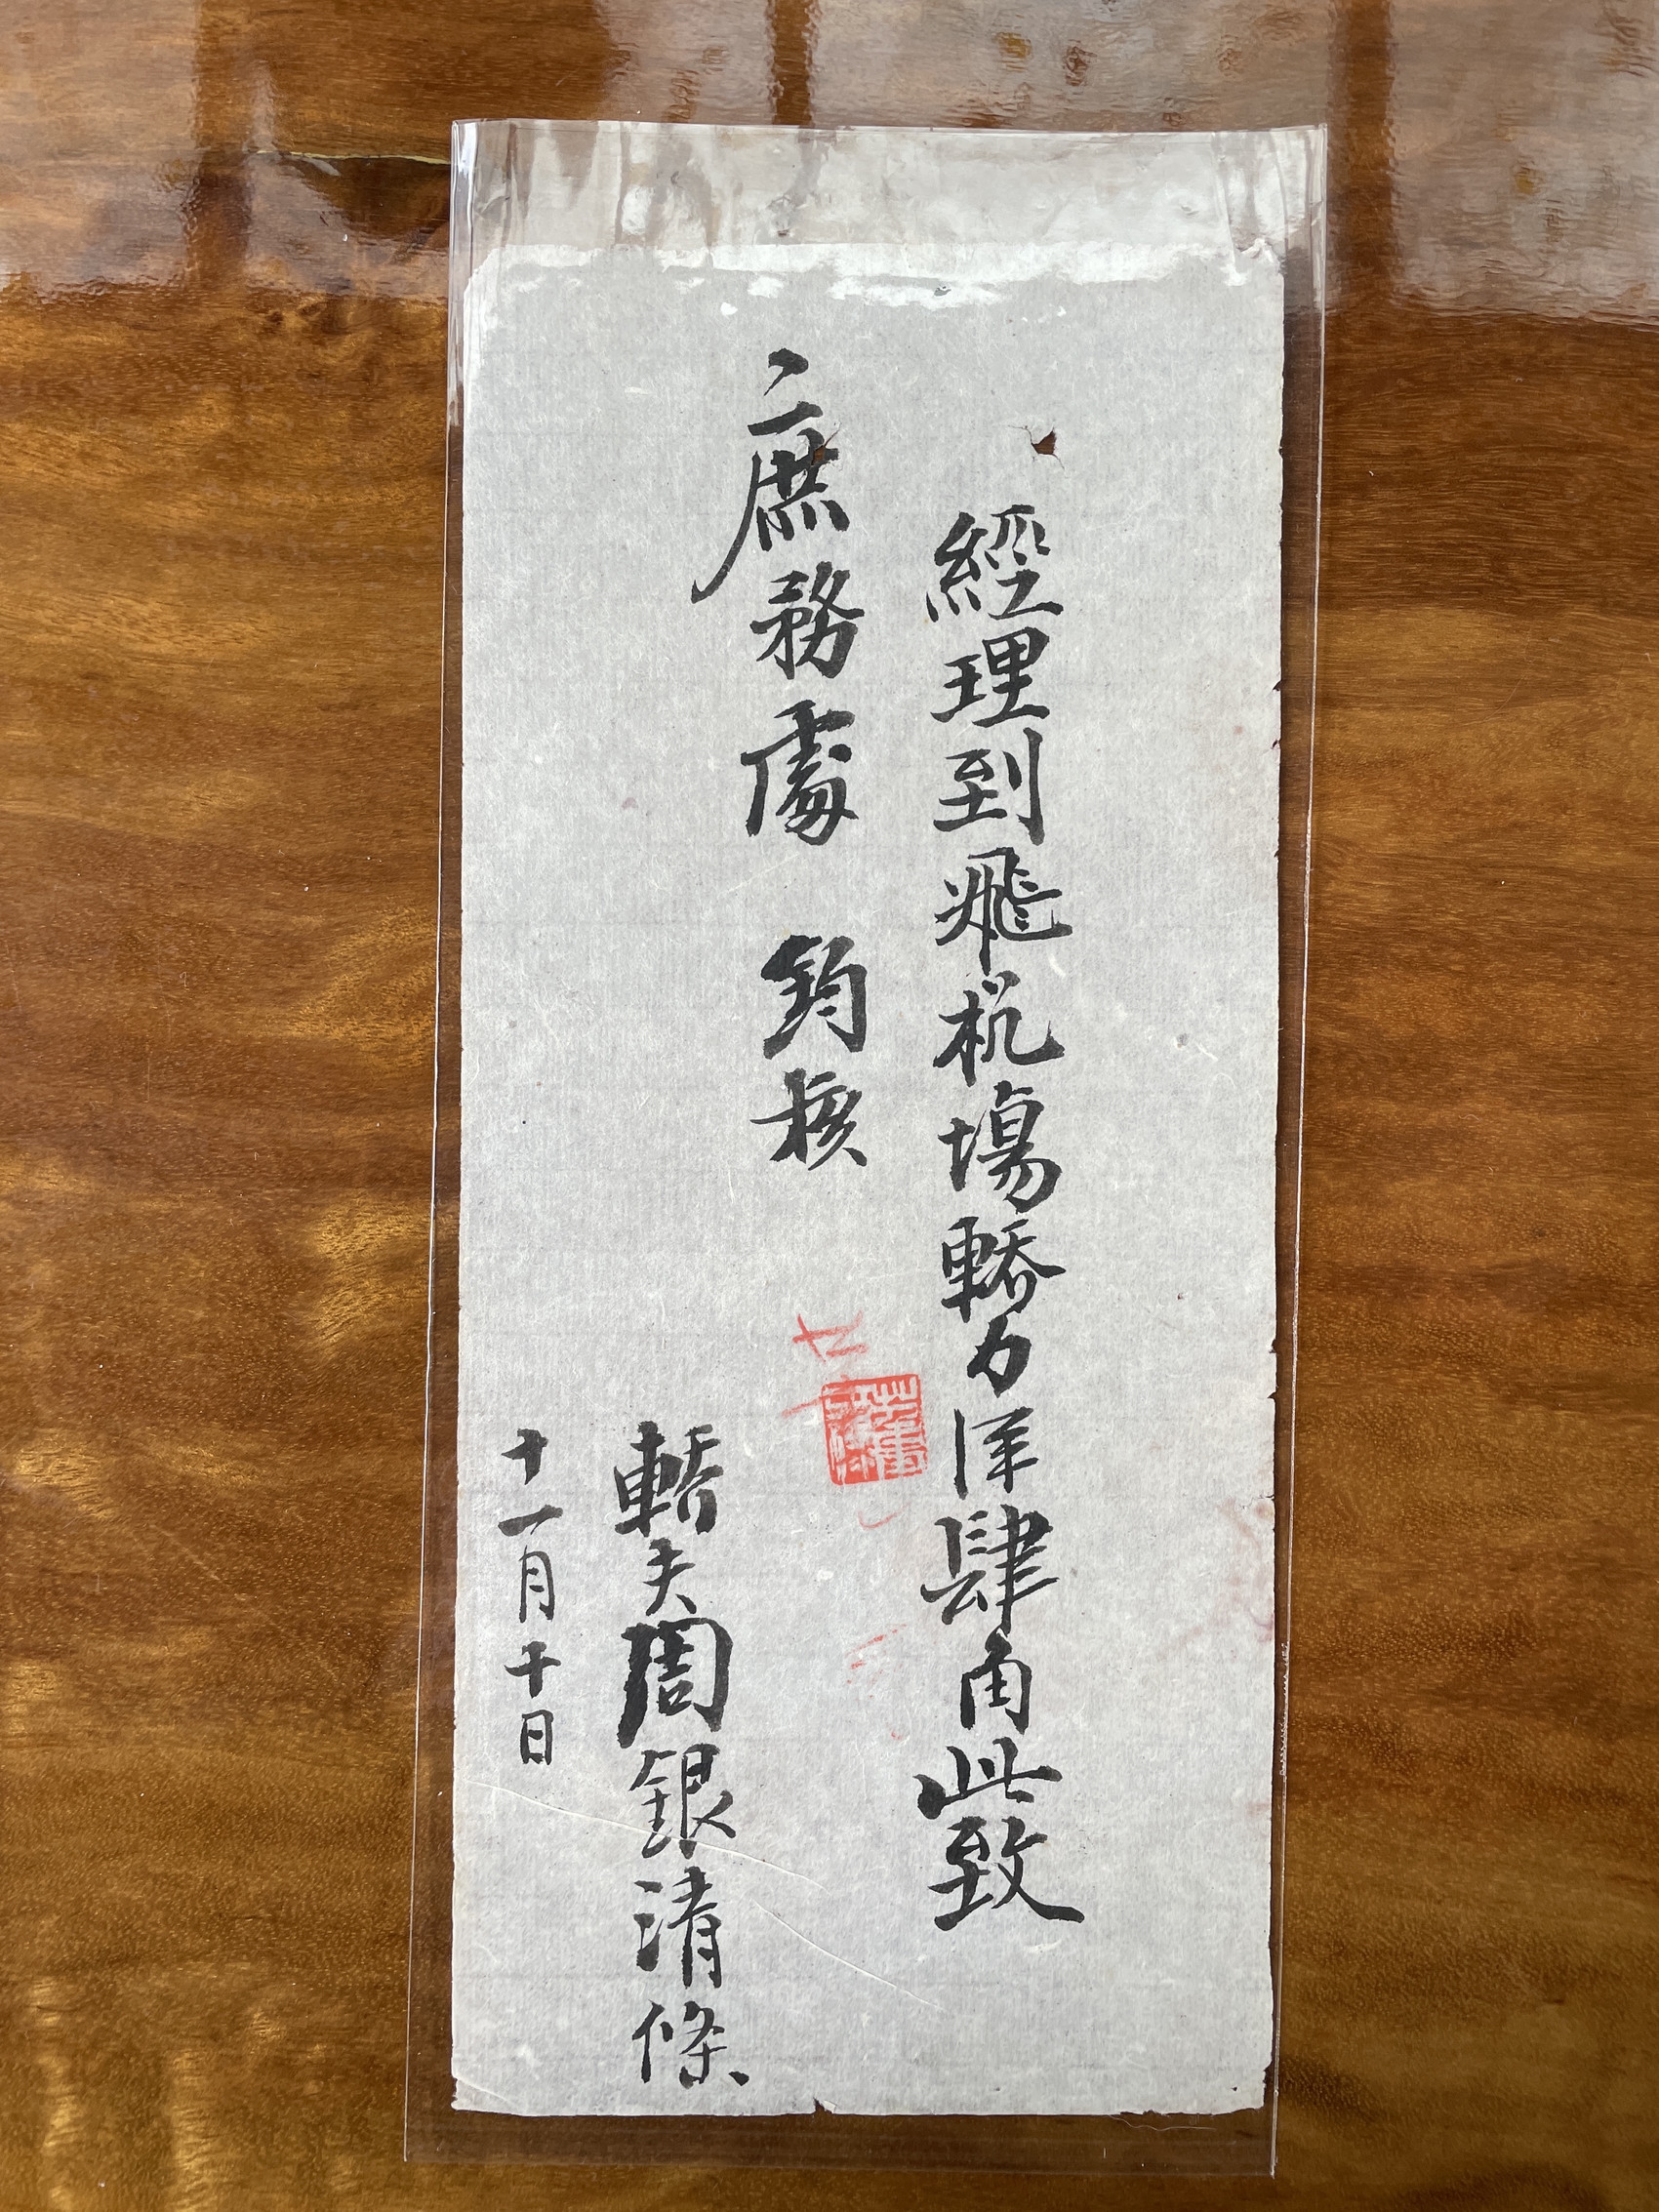 經理到飛杭場轎力洋肆角此致
庶務處 鈞核
轎夫周銀清條
十一月十日